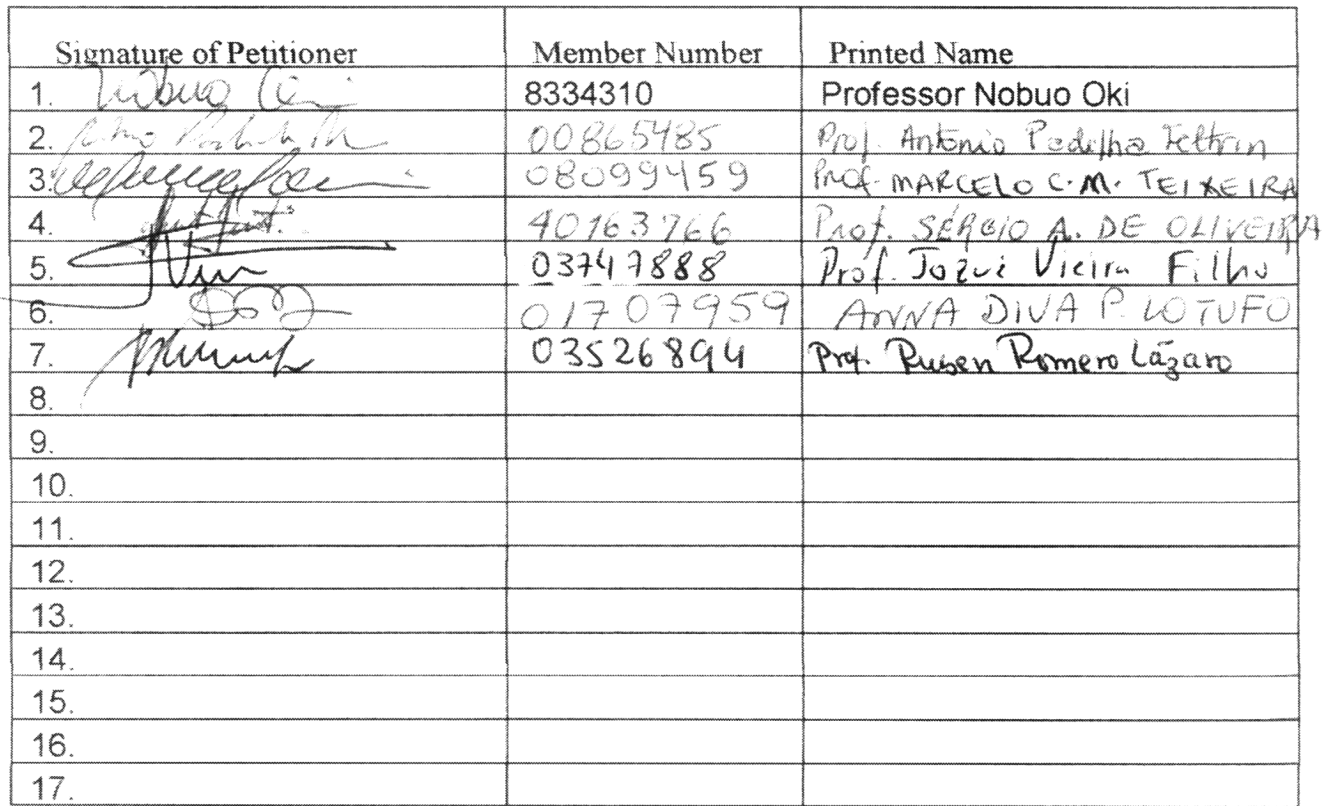 Signature of Petitioner Member Number Printed Name
1. Nobuo Oki 8334310 Professor Nobuo Oki
2. 00865485 Prof. Antonio Padilha Feltrin
3. 08099459 Prof. MARCELO C. M. TEIXEIRA
4. 40163766 Prof. SÉRGIO A. DE OLIVEIRA
5. 03747888 Prof. Jozué Vieira Filho
6. 01707959 ANNA DIVA P. LOTUFO
7. 03526894 Prof. Ruben Romero Lázaro
8.
9.
10.
11.
12.
13.
14.
15.
16.
17.